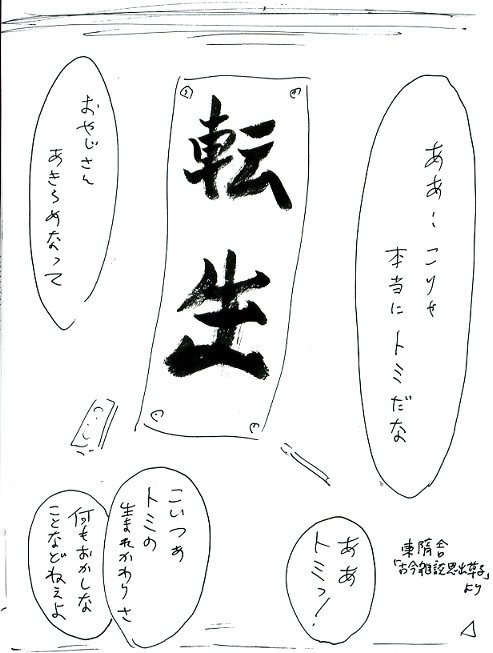 ああ…こりゃ
本当にトミだな
転生
おやじさん
あきらめなって
ああ
トミっ!
こいつぁ
トミの
生まれかわりさ
何もおかしな
ことなどねぇよ
東隋舎
「古今雑談思出草子」
より